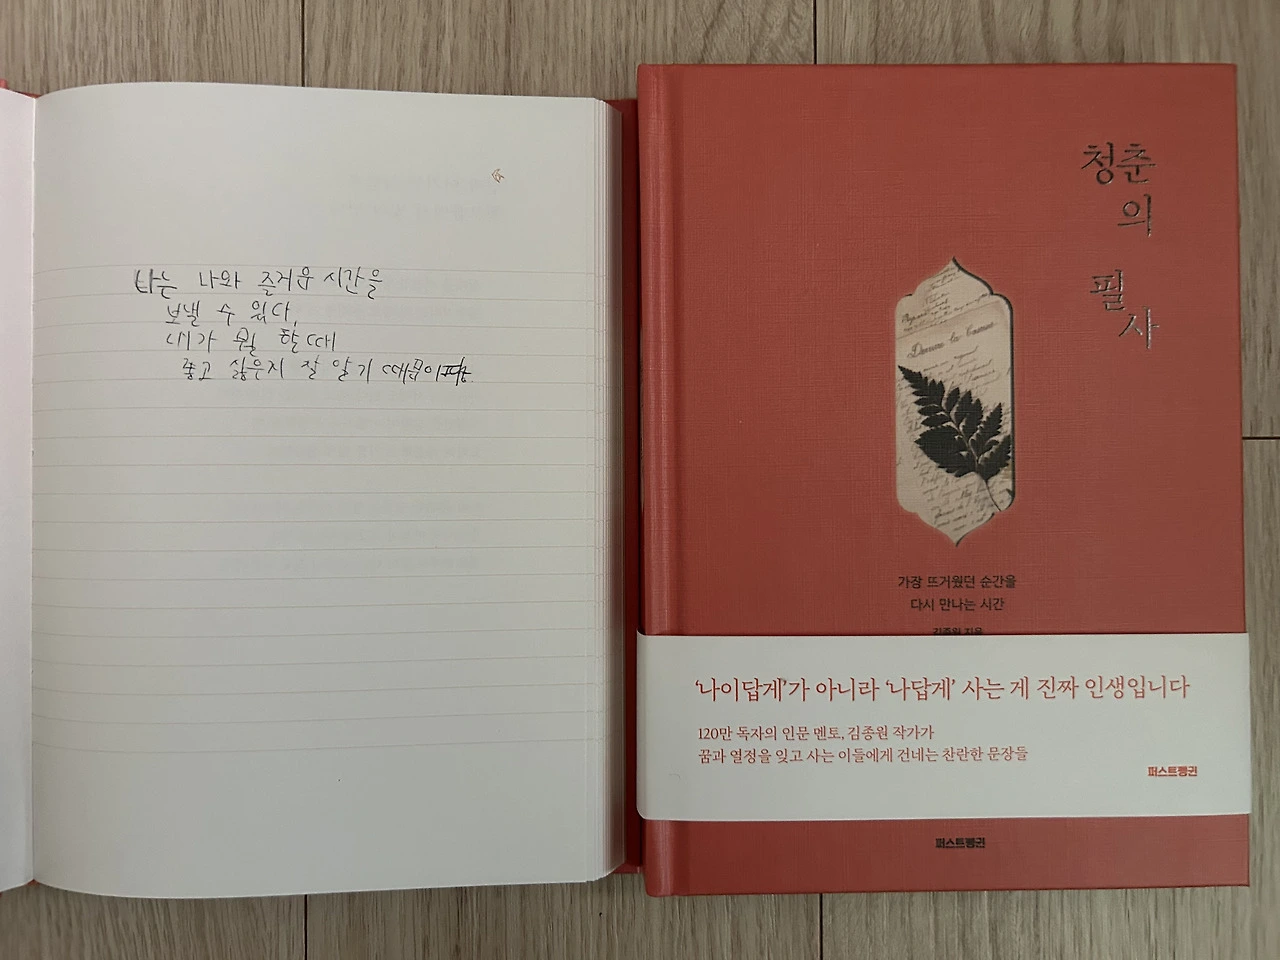 나는 나와 즐거운 시간을
보낼 수 있다.
내가 뭘 할 때
좋고 싫은지 잘 알기 때문이다.
청춘
의
필
사
Donnez la Comme
가장 뜨거웠던 순간을
다시 만나는 시간
김종원 지음
‘나이답게’가 아니라 ‘나답게’ 사는 게 진짜 인생입니다
120만 독자의 인문 멘토, 김종원 작가가
꿈과 열정을 잊고 사는 이들에게 건네는 찬란한 문장들
퍼스트펭귄
퍼스트펭귄